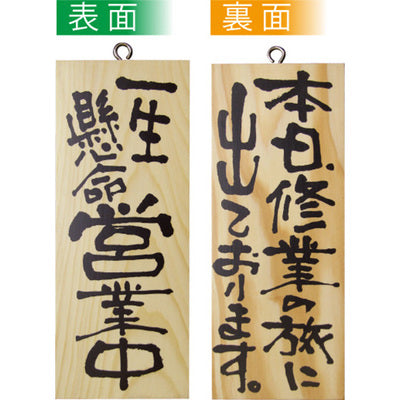 表面
裏面
一生
懸命
営業中
本日、修業の旅に
出ております。